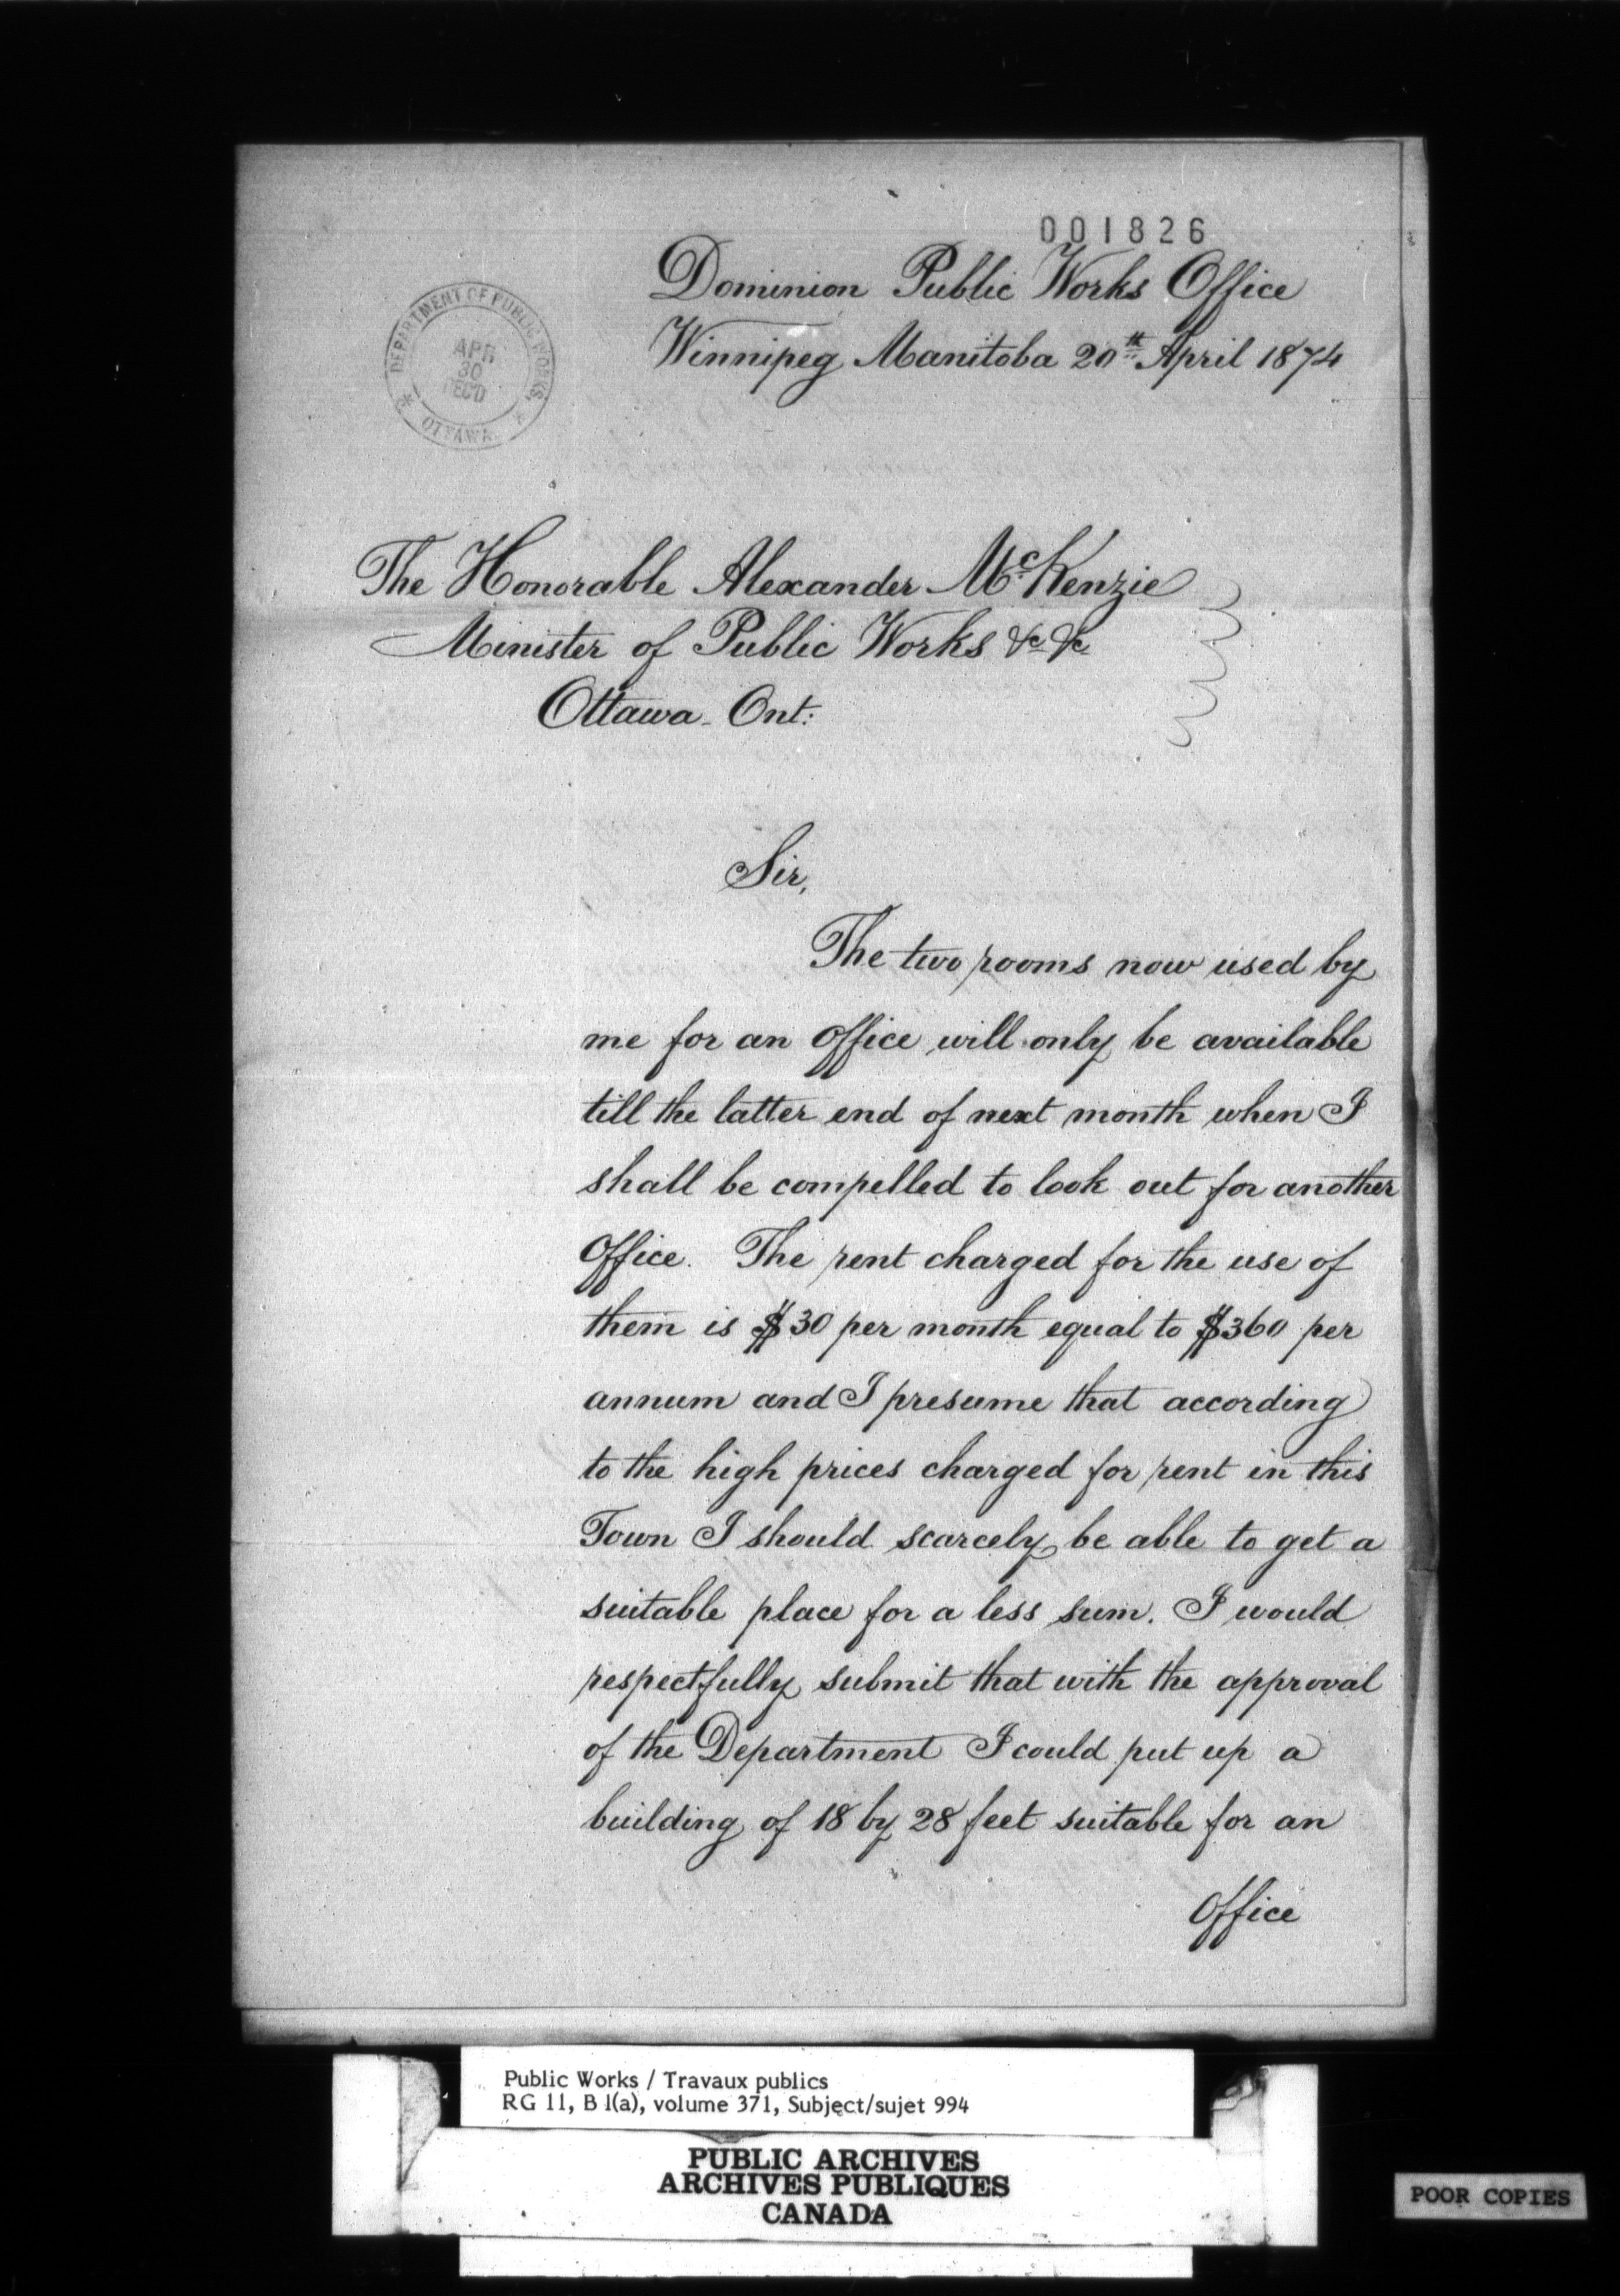 001826
Dominion Public Works Office
Winnipeg Manitoba 20th April 1874
DEPARTMENT OF PUBLIC WORKS
APR
30
REC'D
OTTAWA
The Honorable Alexander McKenzie
Minister of Public Works &c &c
Ottawa - Ont:
Sir,
The two rooms now used by
me for an Office will only be available
till the latter end of next month when I
shall be compelled to look out for another
Office. The rent charged for the use of
them is $30 per month equal to $360 per
annum and I presume that according
to the high prices charged for rent in this
Town I should scarcely be able to get a
suitable place for a less sum. I would
respectfully submit that with the approval
of the Department I could put up a
building of 18 by 28 feet suitable for an
Office
Public Works / Travaux publics
RG 11, B 1(a), volume 371, Subject/sujet 994
PUBLIC ARCHIVES
ARCHIVES PUBLIQUES
CANADA
POOR COPIES